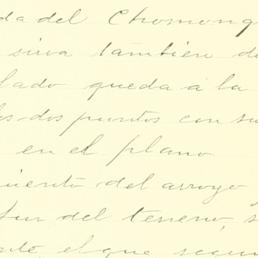 da del Chomong
sirva tambien de
lado queda á la
los dos puntos con su
en el plano
del arroyo
Sur del terreno, s
el que segun